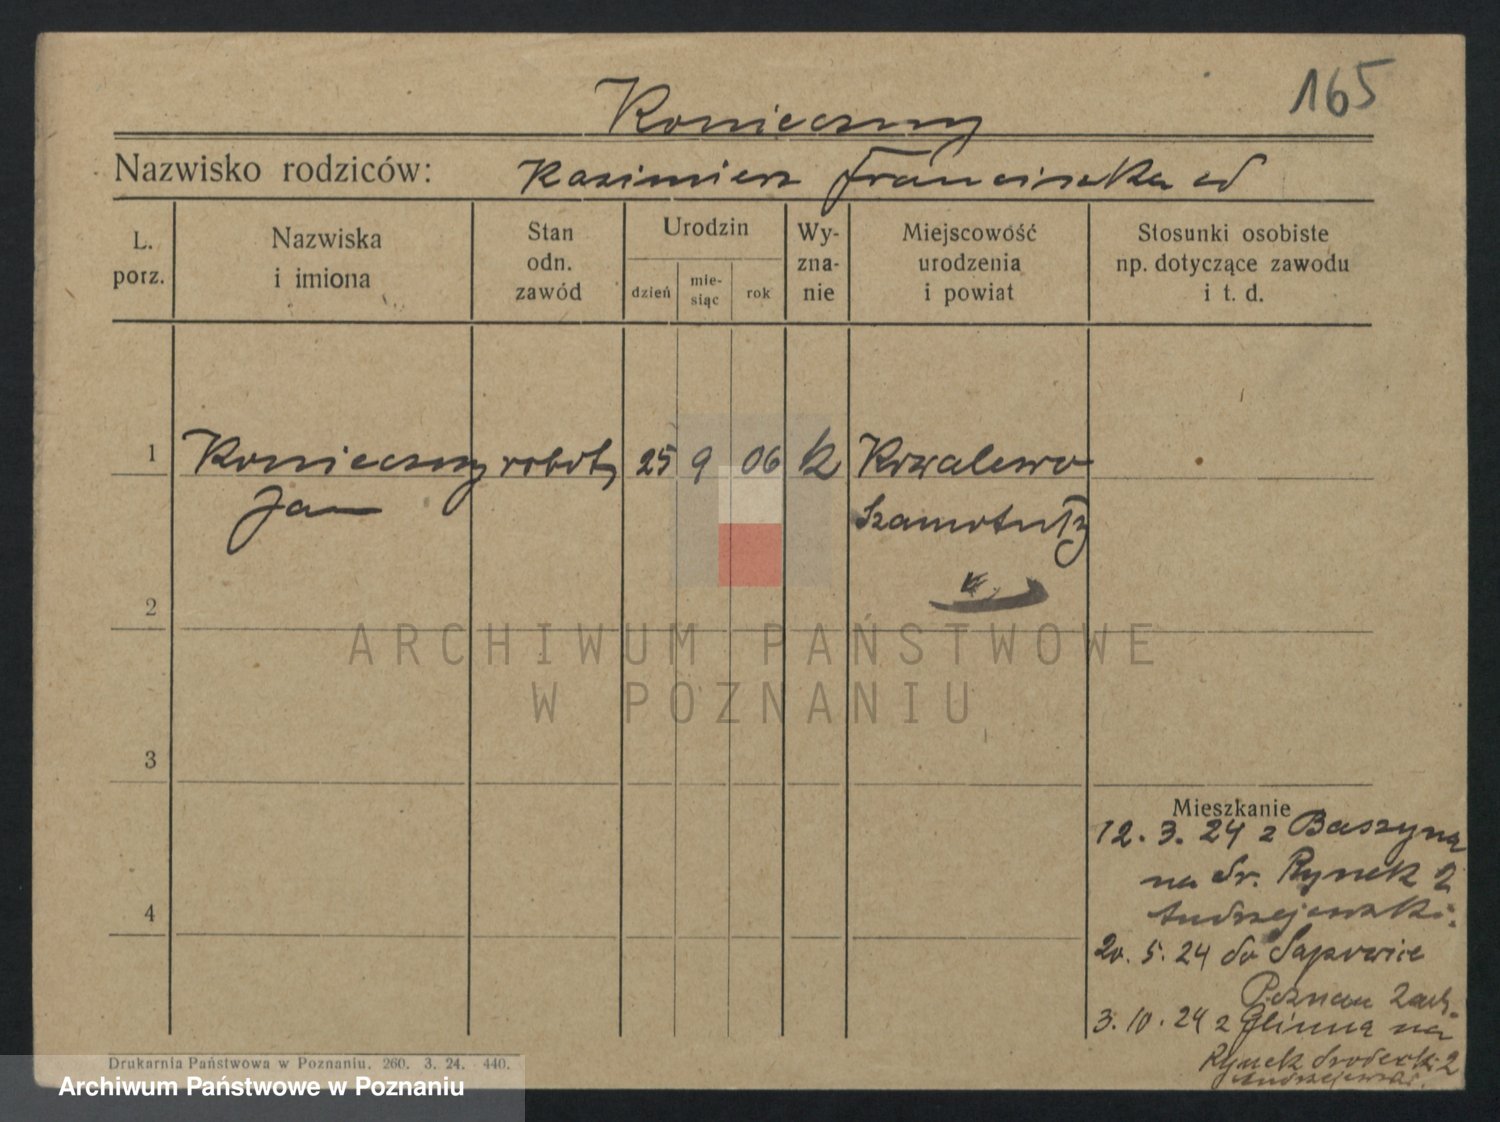 165
Konieczny
Nazwisko rodziców: Kazimierz Franciszka
L. porz.
Nazwiska i imiona
Stan odn. zawód
Urodzin
dzień
mie-
siąc
rok
Wy-
zna-
nie
Miejscowość urodzenia i powiat
Stosunki osobiste np. dotyczące zawodu i t. d.
1 Konieczny robotn 25 9 06 k Kowalewo
Jan Szamotuły
2
3
4
Mieszkanie
12. 3. 24 z Baszyna
na Śr. Rynek 2
Andrzejewski.
20. 5. 24 do Sapowice
Poznan Zach.
3. 10. 24 z Glinna na
Rynek Srodecki 2
Andrzejewski.
Drukarnia Państwowa w Poznaniu. 260. 3. 24. 440.
ARCHIWUM PAŃSTWOWE
W POZNANIU
Archiwum Państwowe w Poznaniu